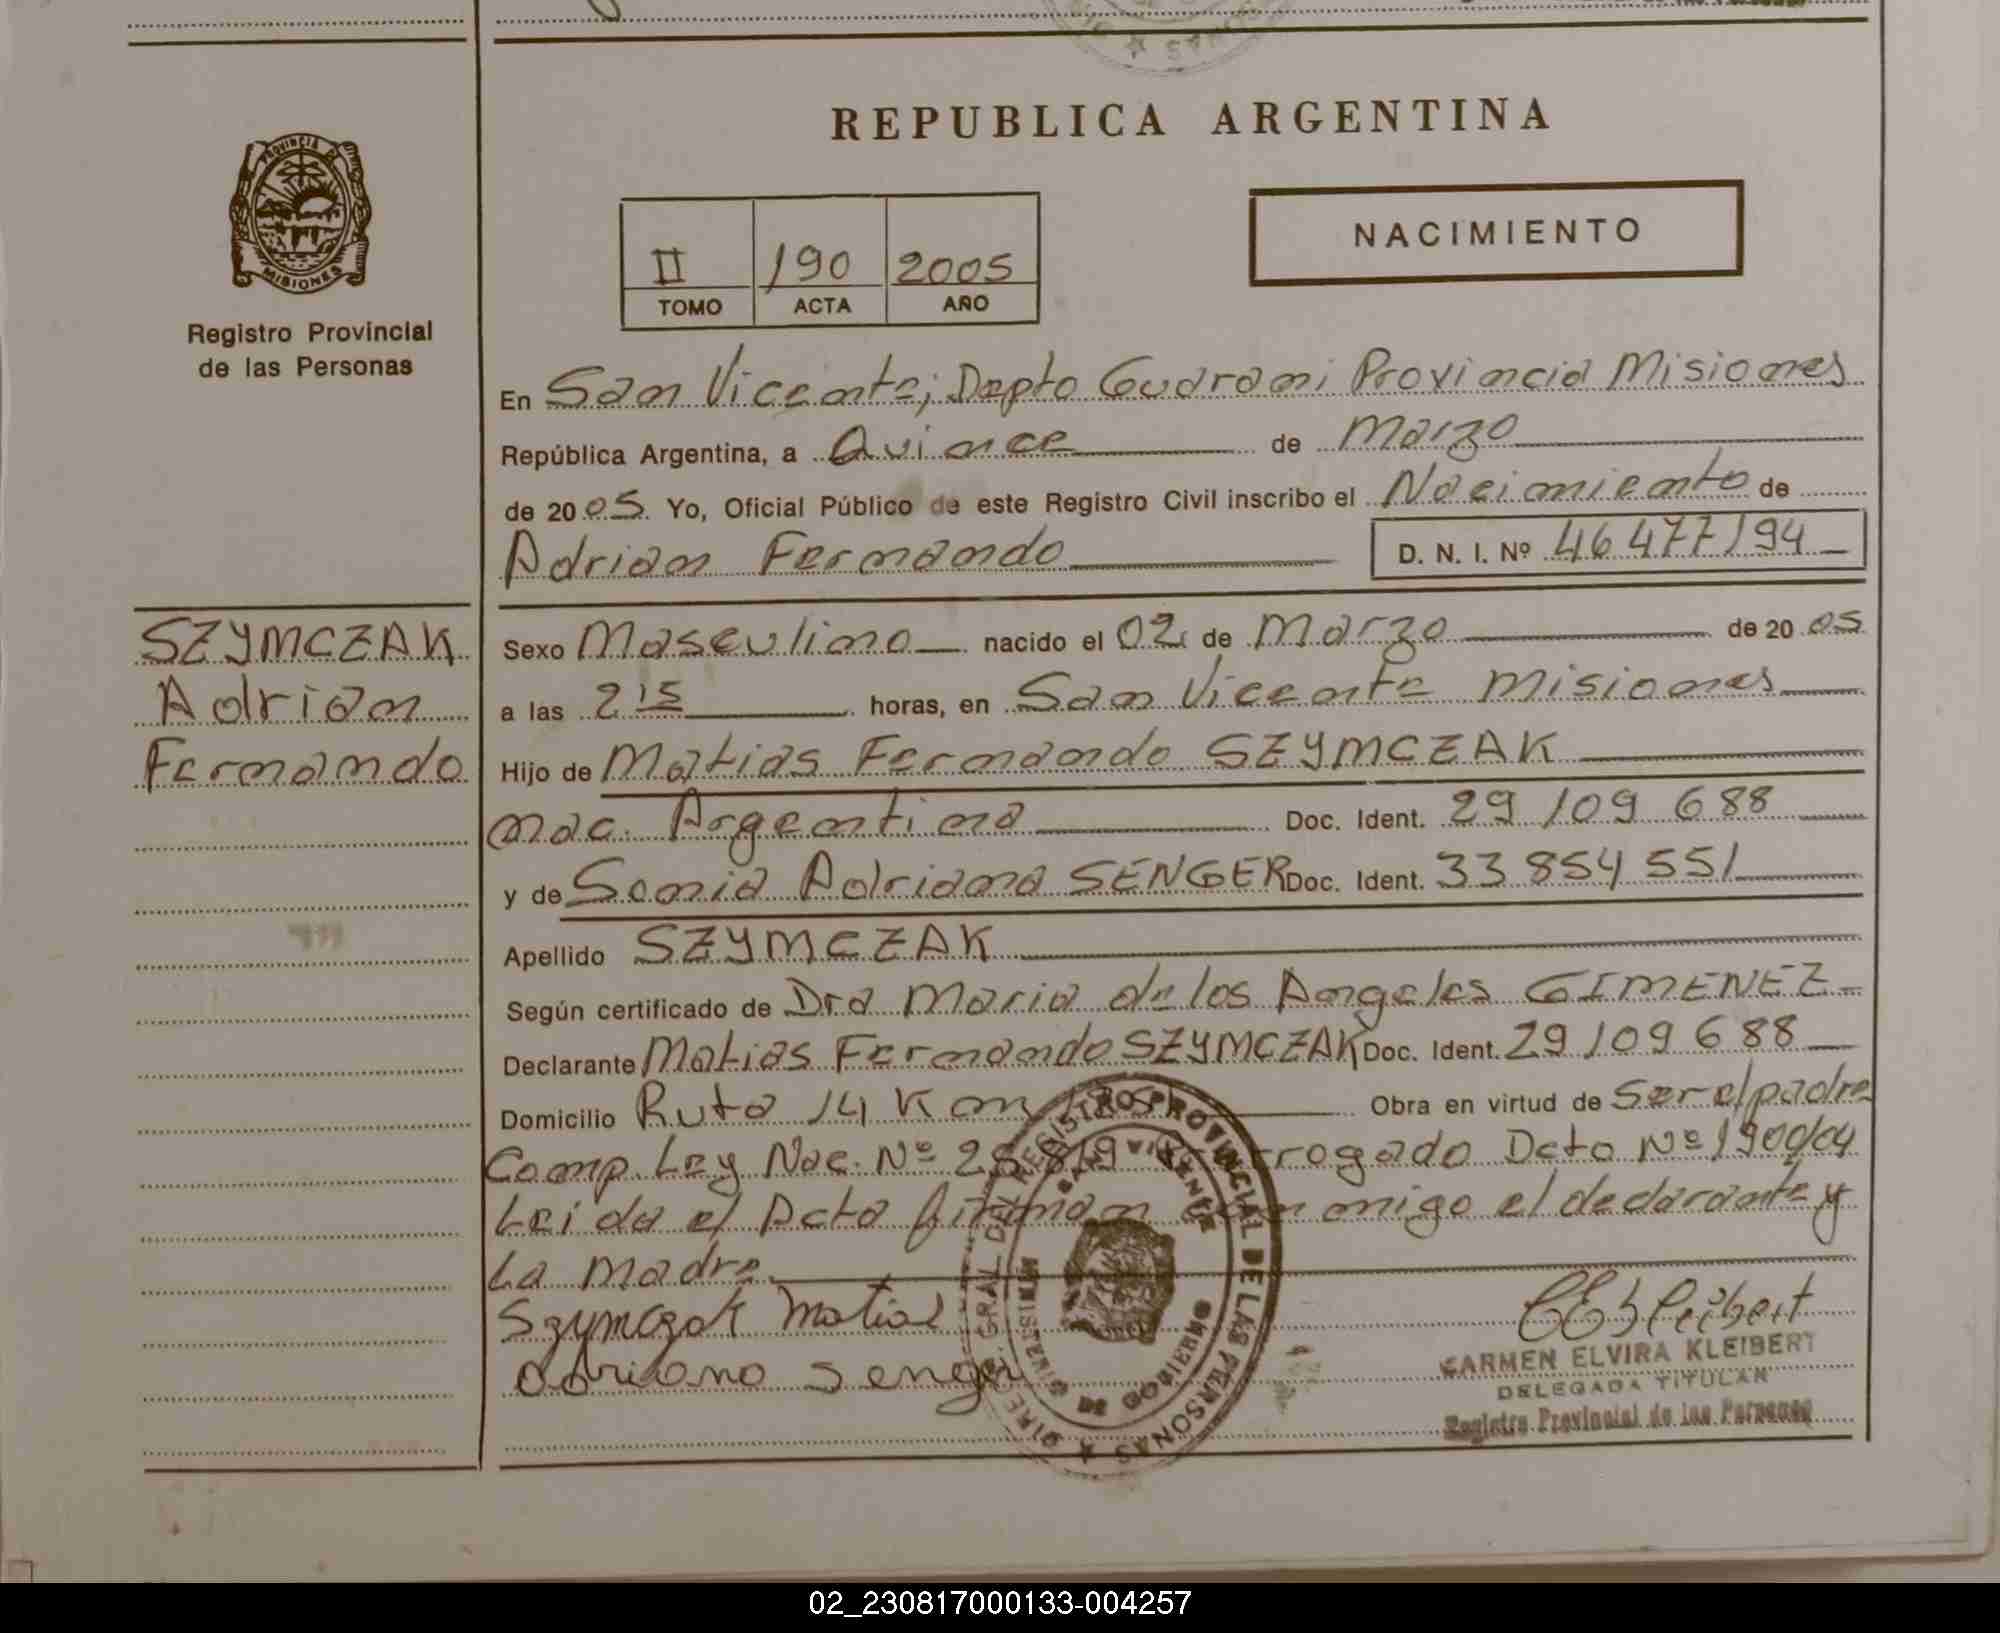 REPUBLICA ARGENTINA
PROVINCIA DE
MISIONES
Registro Provincial
de las Personas
II 190 2005
TOMO ACTA AÑO
NACIMIENTO
En San Vicente; Depto Guarani Provincia Misiones
República Argentina, a Quince de Marzo
de 2005. Yo, Oficial Público de este Registro Civil inscribo el Nacimiento de
Adrian Fernando D. N. I. Nº 46 477 194
SZYMCZAK
Adrian
Fernando
Sexo Masculino nacido el 02 de Marzo de 2005
a las 2 15 horas, en San Vicente Misiones
Hijo de Matias Fernando SZYMCZAK
nac. Argentina Doc. Ident. 29 109 688
y de Sonia Adriana SENGER Doc. Ident. 33 854 551
Apellido SZYMCZAK
Según certificado de Dra Maria de los Angeles GIMENEZ
Declarante Matias Fernando SZYMCZAK Doc. Ident. 29 109 688
Domicilio Ruta 14 Km Obra en virtud de Ser el padre
Comp. Ley Nac. Nº Dcto Nº 1900/04
Leida el Acta firman conmigo el declarante y
La Madre
Szymczak Matias
adriana senger
REGISTRO PROVINCIAL DE LAS PERSONAS
SAN VICENTE
MINISTERIO DE GOBIERNO
CARMEN ELVIRA KLEIBERT
DELEGADA TITULAR
Registro Provincial de las Personas
02_230817000133-004257